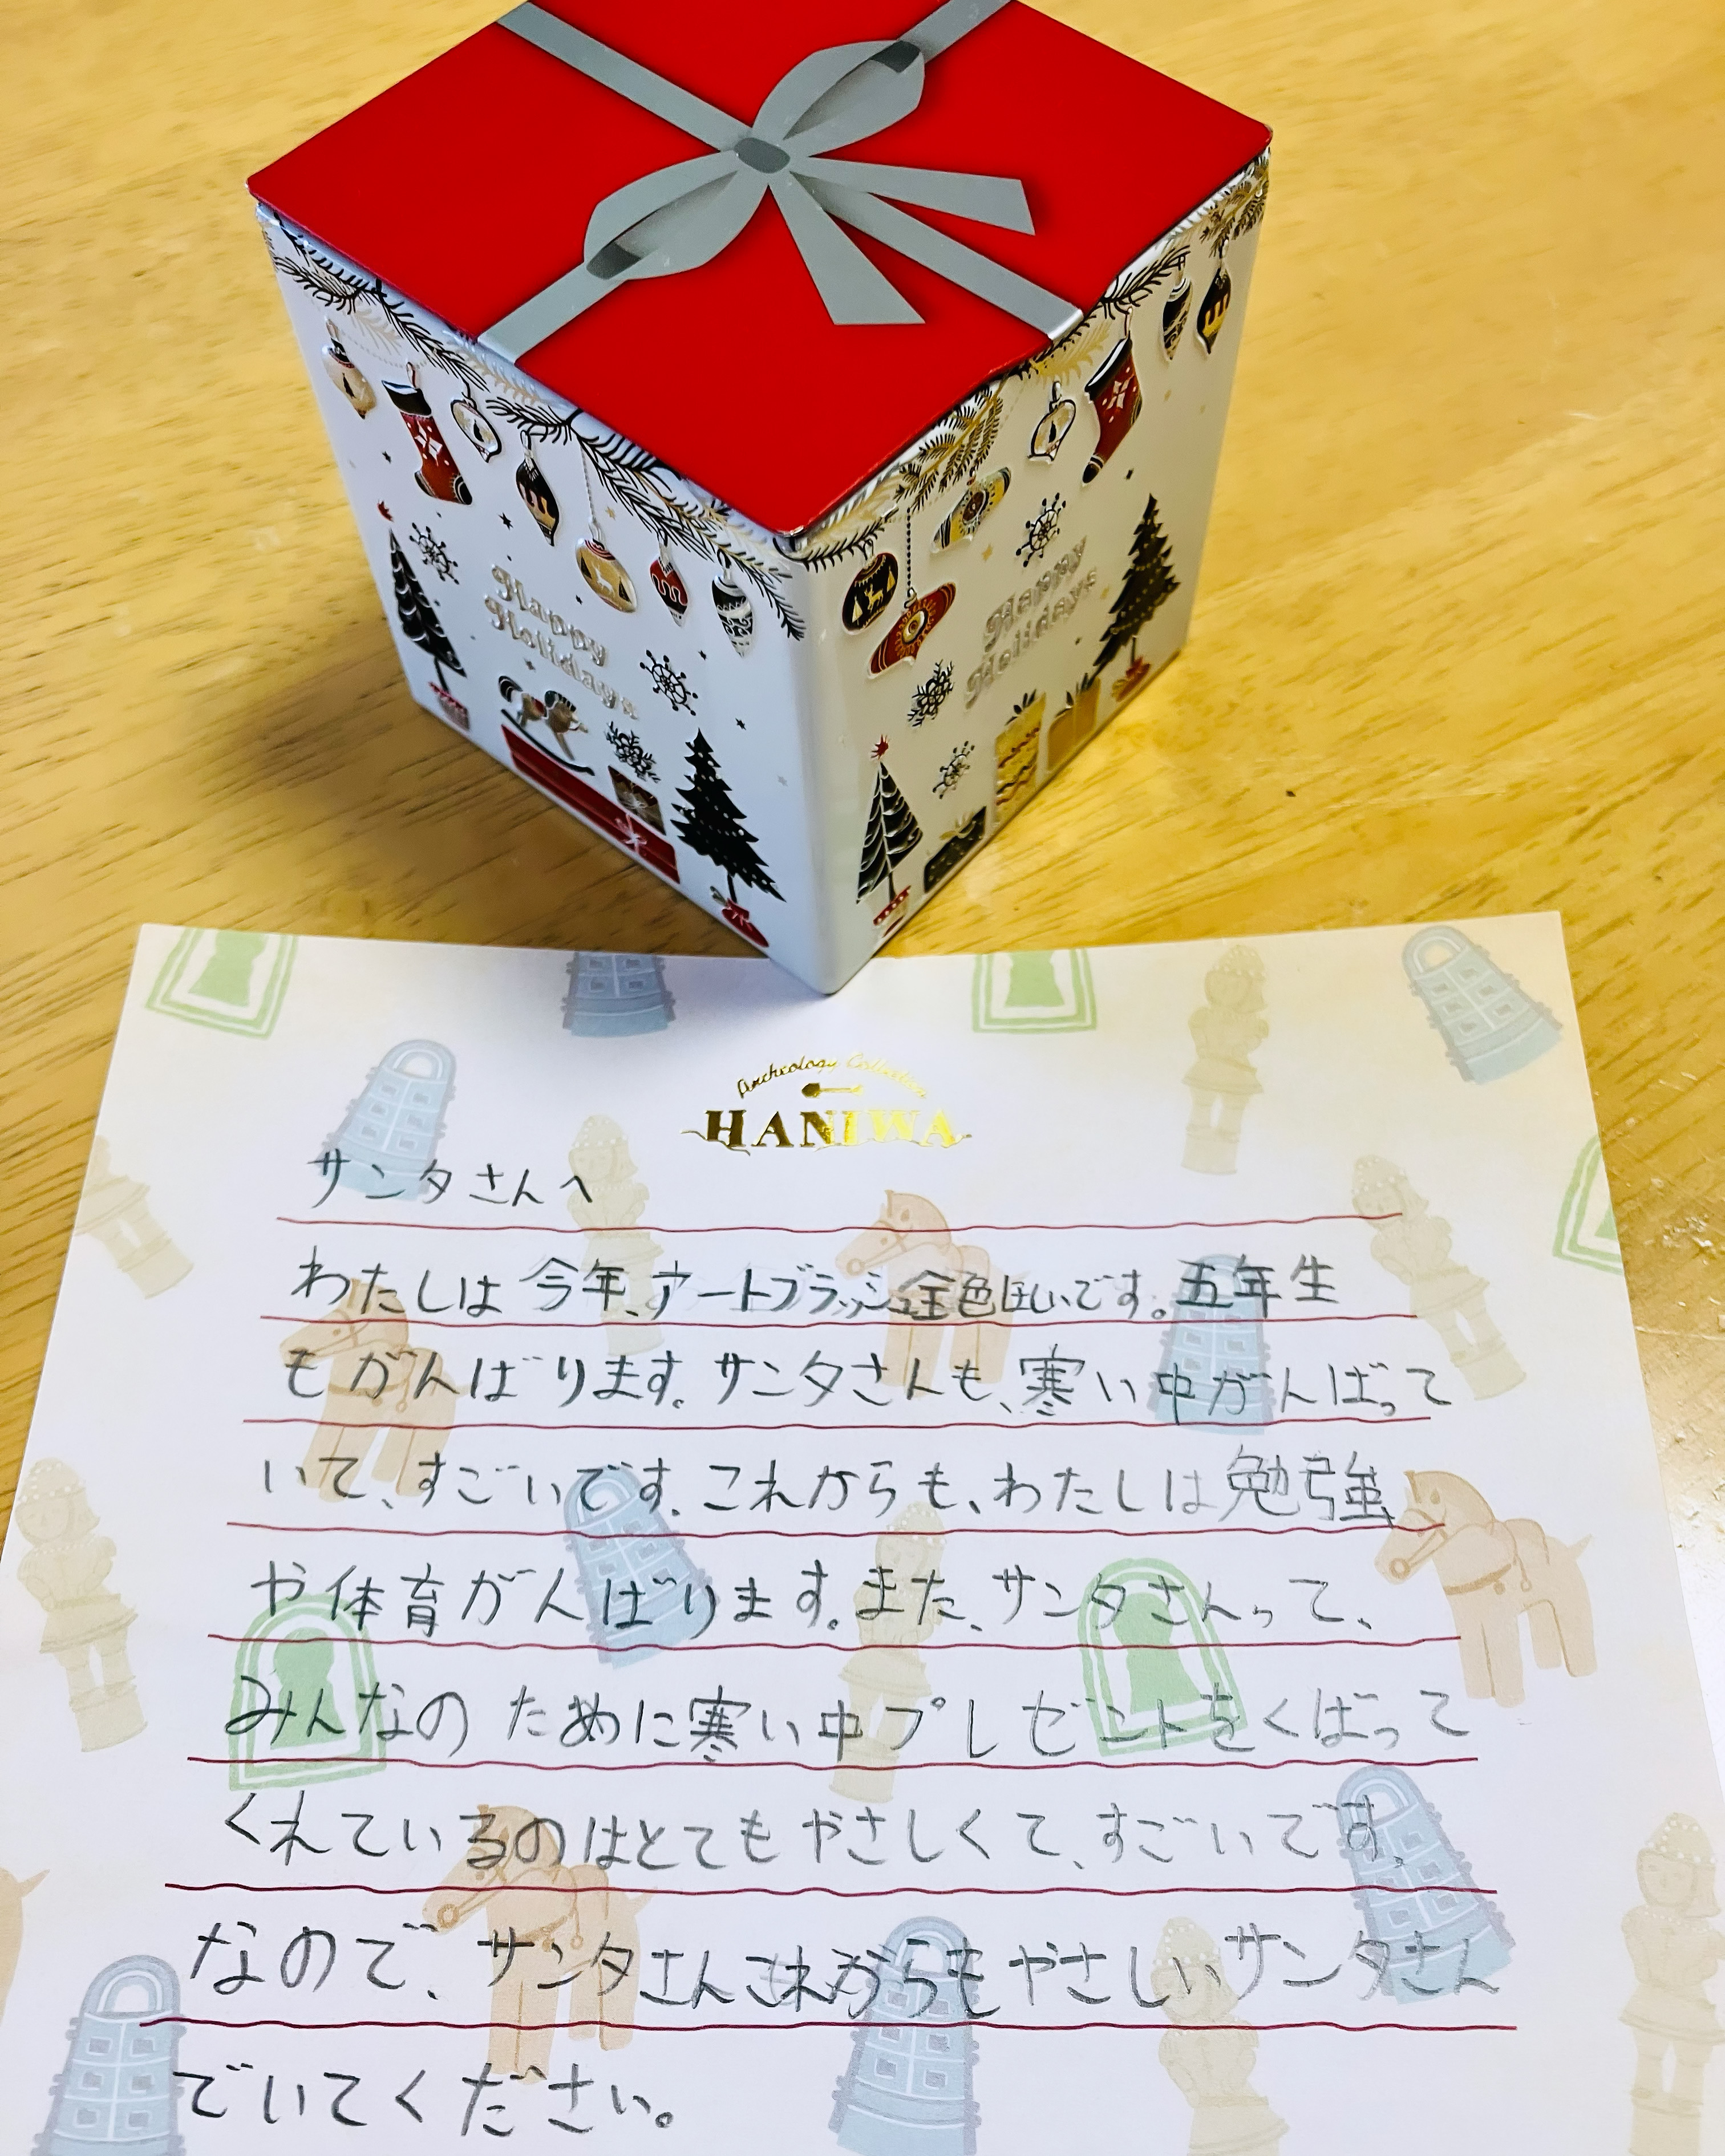 Happy
Holidays
Happy
Holidays
Archeology Collection
HANIWA
サンタさんへ
わたしは今年、アートブラッシュ金色ほしいです。五年生
もがんばります。サンタさんも、寒い中がんばって
いて、すごいです。これからも、わたしは勉強
や体育がんばります。また、サンタさんって、
みんなのために寒い中プレゼントをくばって
くれているのはとてもやさしくて、すごいです。
なので、サンタさんこれからもやさしいサンタさん
でいてください。